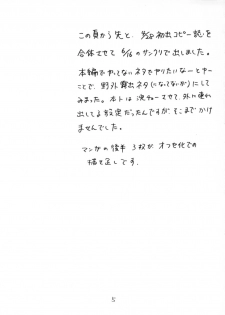 この頁から先と、5/20初出コピー誌を
合体させて6/16のサンクリで出しました。
本編でやってないネタをやりたいなーとゆー
ことで、野外露出ネタ(になってないが)にして
みました。本トは浣チューさせて、外に連れ
出してよ設定だったんですが、そこまでかけ
ませんでした。
マンガの後半3枚がオフセ化での
描き足しです。
5